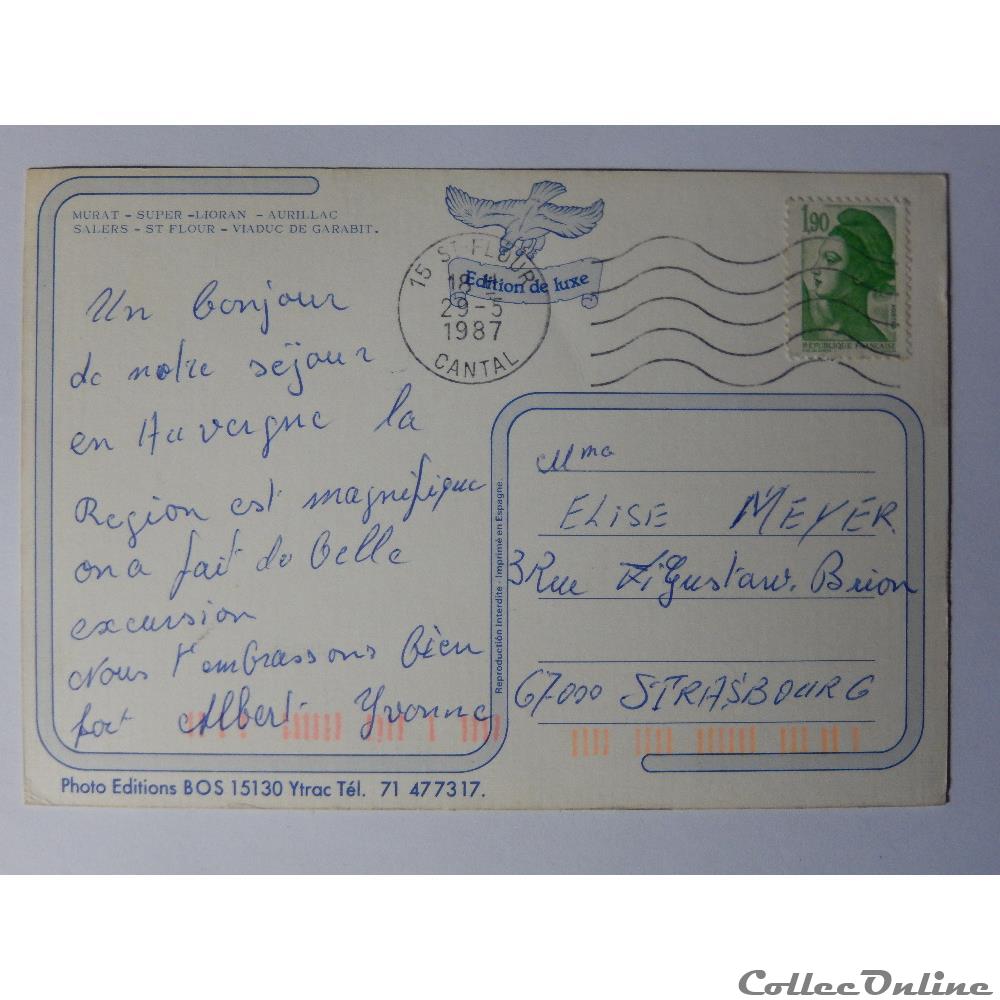 MURAT - SUPER -LIORAN - AURILLAC
SALERS - ST FLOUR - VIADUC DE GARABIT.
Edition de luxe
15 ST-FLOUR
29-5
1987
CANTAL
1,90
REPUBLIQUE FRANÇAISE
Un bonjour
de notre séjour
en Auvergne la
Region est magnifique
on a fait de belle
excursion
Nous t'embrassons bien
fort Albert Yvonne
Reproduction Interdite - Imprimé en Espagne.
Mme
ELISE MEYER
3 Rue Gustave. Brion
67000 STRASBOURG
Photo Editions BOS 15130 Ytrac Tél. 71 477317.
CollecOnline